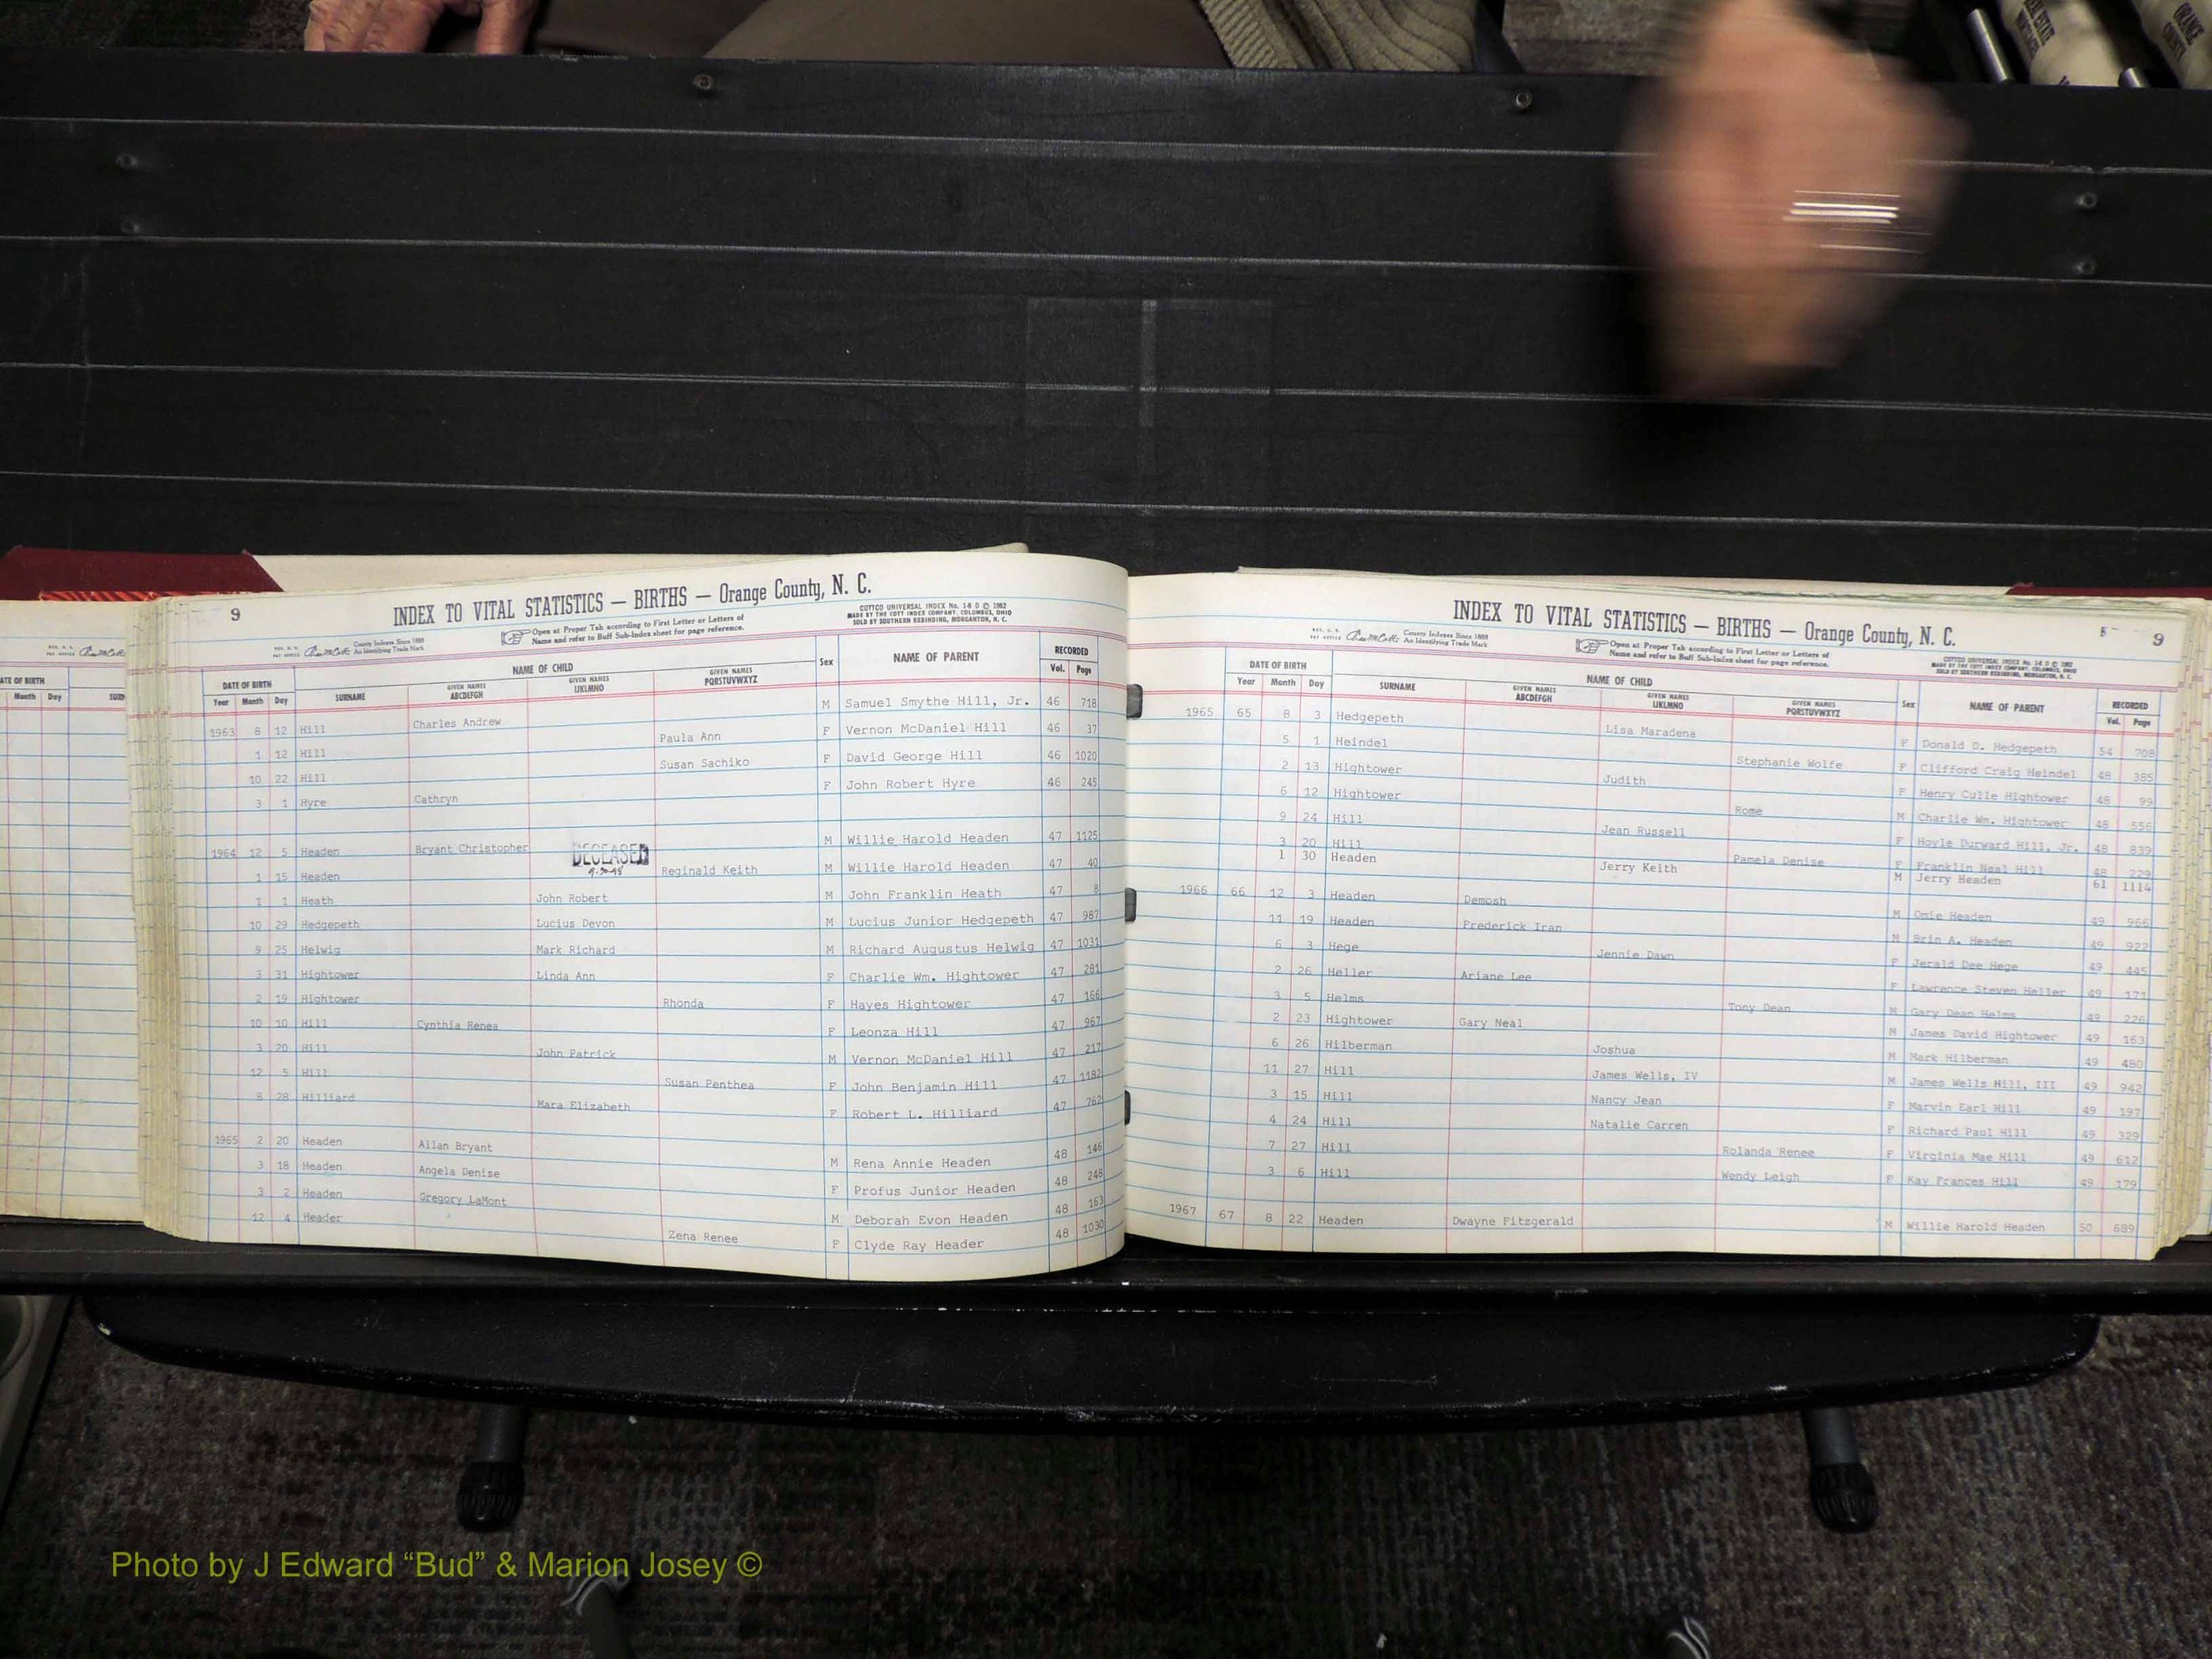 REAL ESTATE
ORANGE COUNTY
9
INDEX TO VITAL STATISTICS — BIRTHS — Orange County, N. C.
County Indexes Since 1888
An Identifying Trade Mark
Open at Proper Tab according to First Letter or Letters of
Name and refer to Buff Sub-Index sheet for page reference.
COTTCO UNIVERSAL INDEX No. 1-8 D © 1962
MADE BY THE COTT INDEX COMPANY, COLUMBUS, OHIO
SOLD BY SOUTHERN REBINDING, MORGANTON, N. C.
DATE OF BIRTH NAME OF CHILD Sex NAME OF PARENT RECORDED
Year Month Day SURNAME GIVEN NAMES ABCDEFGH GIVEN NAMES IJKLMNO GIVEN NAMES PQRSTUVWXYZ Vol. Page
1963 8 12 Hill Charles Andrew M Samuel Smythe Hill, Jr. 46 718
1 12 Hill Paula Ann F Vernon McDaniel Hill 46 37
10 22 Hill Susan Sachiko F David George Hill 46 1020
3 1 Hyre Cathryn F John Robert Hyre 46 245
1964 12 5 Headen Bryant Christopher M Willie Harold Headen 47 1125
DECEASED
9-30-98
1 15 Headen Reginald Keith M Willie Harold Headen 47 40
1 1 Heath John Robert M John Franklin Heath 47 8
10 29 Hedgepeth Lucius Devon M Lucius Junior Hedgepeth 47 987
9 25 Helwig Mark Richard M Richard Augustus Helwig 47 1031
3 31 Hightower Linda Ann F Charlie Wm. Hightower 47 281
2 19 Hightower Rhonda F Hayes Hightower 47 166
10 10 Hill Cynthia Renea F Leonza Hill 47 967
3 20 Hill John Patrick M Vernon McDaniel Hill 47 217
12 5 Hill Susan Penthea F John Benjamin Hill 47 1182
8 28 Hilliard Mara Elizabeth F Robert L. Hilliard 47 762
1965 2 20 Headen Allan Bryant M Rena Annie Headen 48 146
3 18 Headen Angela Denise F Profus Junior Headen 48 248
3 2 Headen Gregory LaMont M Deborah Evon Headen 48 163
12 4 Header Zena Renee F Clyde Ray Header 48 1030
9
INDEX TO VITAL STATISTICS — BIRTHS — Orange County, N. C.
County Indexes Since 1888
An Identifying Trade Mark
Open at Proper Tab according to First Letter or Letters of
Name and refer to Buff Sub-Index sheet for page reference.
COTTCO UNIVERSAL INDEX No. 1-8 D © 1962
MADE BY THE COTT INDEX COMPANY, COLUMBUS, OHIO
SOLD BY SOUTHERN REBINDING, MORGANTON, N. C.
DATE OF BIRTH NAME OF CHILD Sex NAME OF PARENT RECORDED
Year Month Day SURNAME GIVEN NAMES ABCDEFGH GIVEN NAMES IJKLMNO GIVEN NAMES PQRSTUVWXYZ Vol. Page
1965 65 8 3 Hedgepeth Lisa Maradena F Donald D. Hedgepeth 54 708
5 1 Heindel Stephanie Wolfe F Clifford Craig Heindel 48 385
2 13 Hightower Judith F Henry Culle Hightower 48 99
6 12 Hightower Rome M Charlie Wm. Hightower 48 556
9 24 Hill Jean Russell F Hoyle Durward Hill, Jr. 48 839
3 20 Hill Pamela Denise F Franklin Neal Hill 48 229
1 30 Headen Jerry Keith M Jerry Headen 61 1114
1966 66 12 3 Headen Demosh M Omie Headen 49 966
11 19 Headen Frederick Iran M Brin A. Headen 49 922
6 3 Hege Jennie Dawn F Jerald Dee Hege 49 445
2 26 Heller Ariane Lee F Lawrence Steven Heller 49 171
3 5 Helms Tony Dean M Gary Dean Helms 49 226
2 23 Hightower Gary Neal M James David Hightower 49 163
6 26 Hilberman Joshua M Mark Hilberman 49 480
11 27 Hill James Wells, IV M James Wells Hill, III 49 942
3 15 Hill Nancy Jean F Marvin Earl Hill 49 197
4 24 Hill Natalie Carren F Richard Paul Hill 49 329
7 27 Hill Rolanda Renee F Virginia Mae Hill 49 612
3 6 Hill Wendy Leigh F Kay Frances Hill 49 179
1967 67 8 22 Headen Dwayne Fitzgerald M Willie Harold Headen 50 689
Photo by J Edward “Bud” & Marion Josey ©